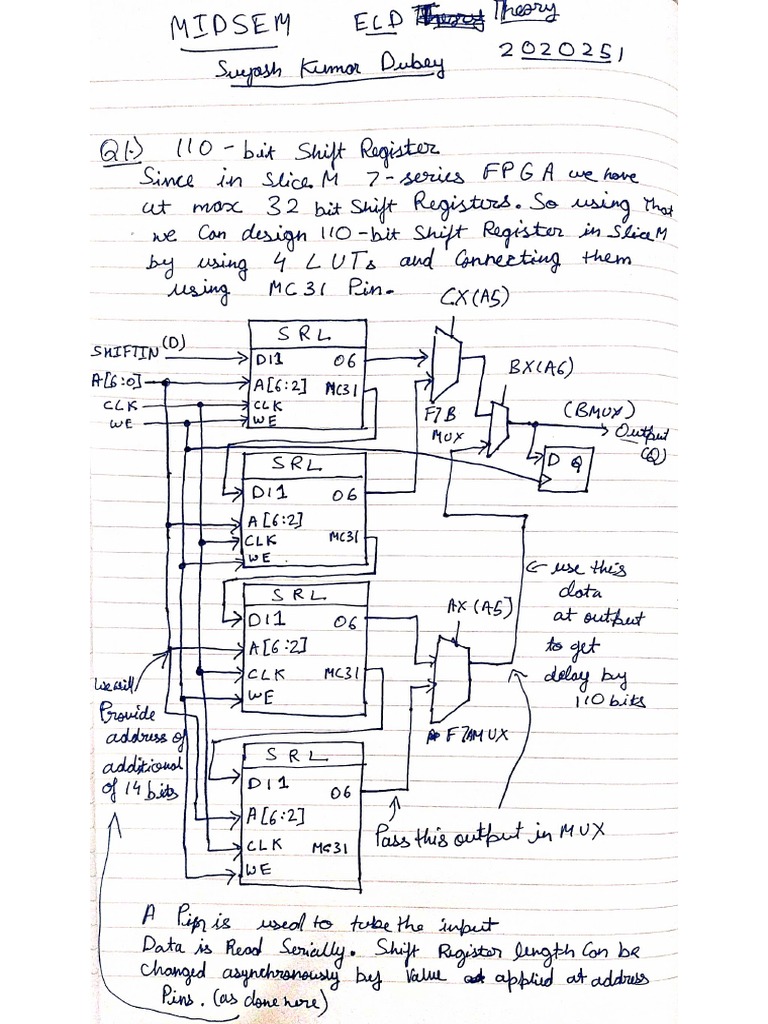 MIDSEM ELD Theory
Suyash Kumar Dubey 2020251
Q1.) 110-bit Shift Register
Since in Slice M 7-series FPGA we have
at max 32 bit Shift Registers. So using that
we can design 110-bit Shift Register in Slice M
by using 4 LUTs and Connecting them
using MC31 Pin.
CX(A5)
SRL
SHIFTIN (D)
DI1 O6
BX(A6)
A[6:0]
A[6:2] MC31
CLK
CLK
WE
WE
F7B
MUX
(BMUX)
Output
(Q)
SRL
D Q
DI1 O6
A[6:2]
CLK MC31
WE
SRL
DI1 O6
A[6:2]
CLK MC31
WE
AX(A5)
F7AMUX
use this
data
at output
to get
delay by
110 bits
we will
Provide
address of
additional
of 14 bits
SRL
DI1 O6
A[6:2]
CLK MC31
WE
Pass this output in MUX
A Pin is used to tube the input
Data is Read Serially. Shift Register length can be
changed asynchronously by value applied at address
Pins. (as done here)